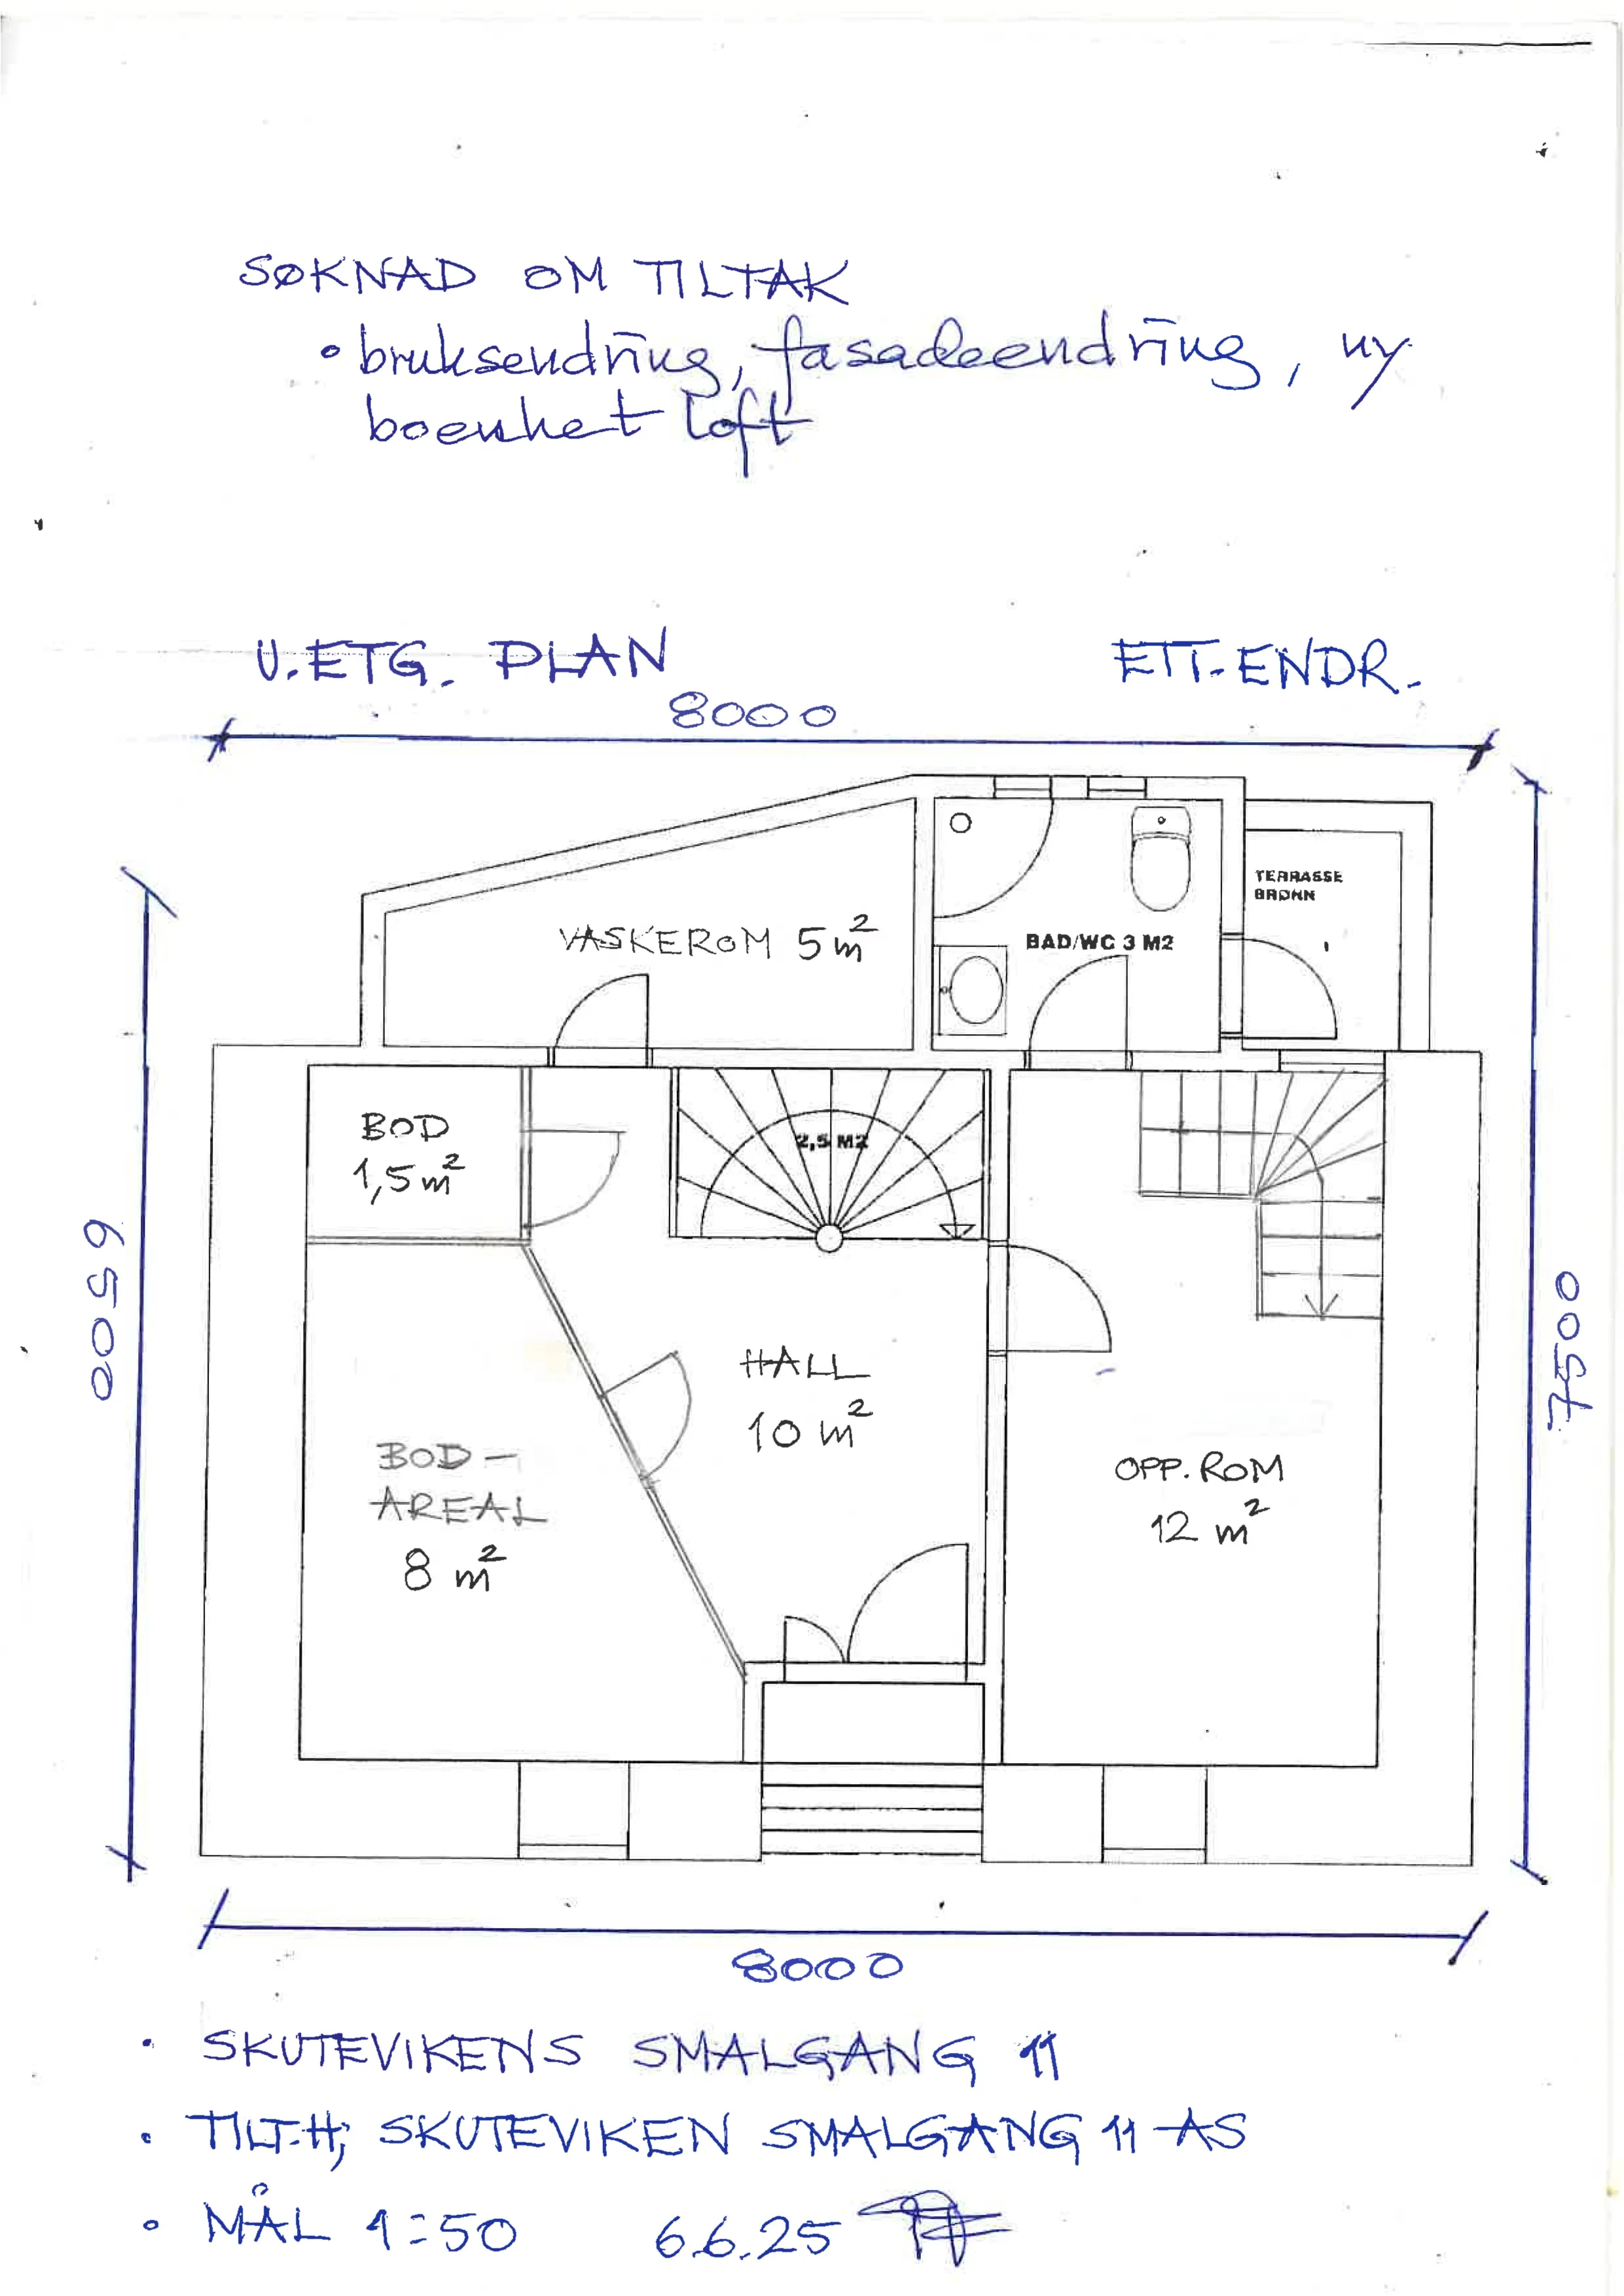 SØKNAD OM TILTAK
• bruksendring, fasadeendring, ny
boenhet loft
U.ETG. PLAN
ETT. ENDR.
8000
TERRASSE
BRØNN
VASKEROM 5 m²
BAD/WC 3 M2
BOD
1,5 m²
2,5 M2
6500
7500
HALL
10 m²
BOD-
AREAL
8 m²
OPP. ROM
12 m²
8000
• SKUTEVIKENS SMALGANG 11
• TILT.H; SKUTEVIKEN SMALGANG 11 AS
• MÅL 1:50 6.6.25